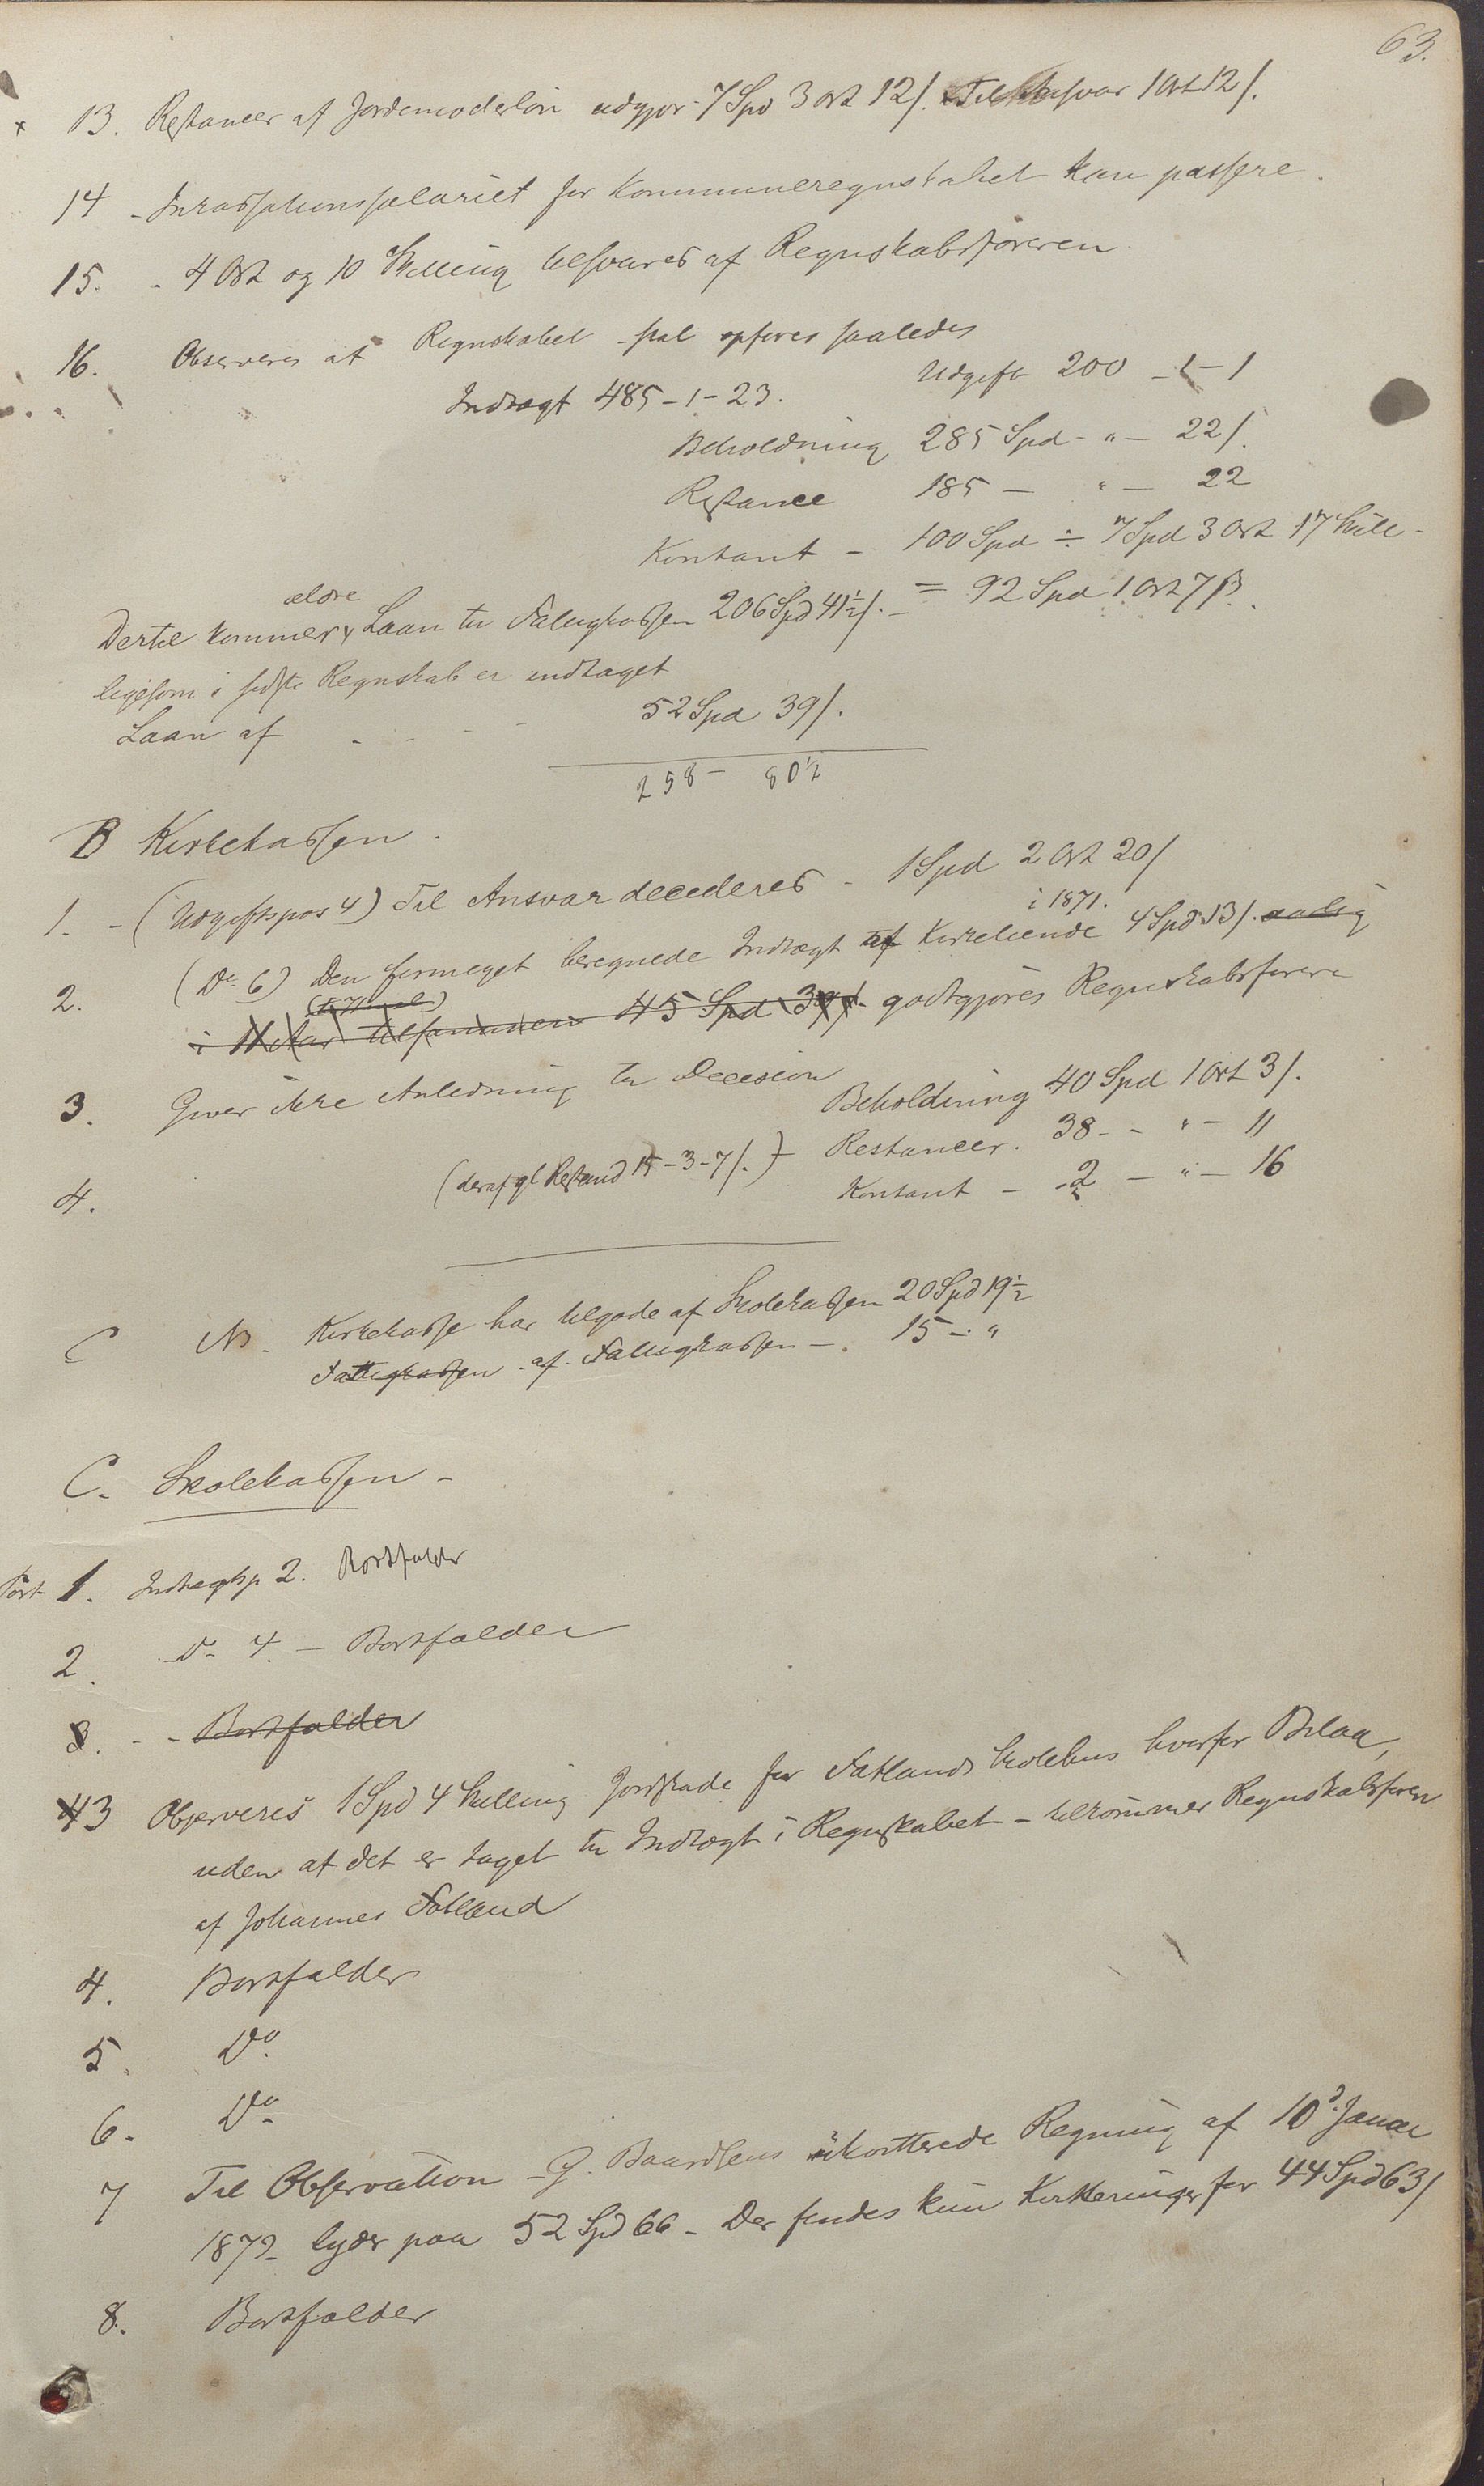 63.
13. Restancer af Jordemoderløn udgjør 7 Spd 3 Ort 12 /. Til Ansvar 1 Ort 12 /.
14 - Inkassationssalariet for Kommuneregnskabet kan passere.
15. - 4 Ort og 10 Skilling tilsvares af Regnskabsføreren
16. Observeres at Regnskabet skal opføres saaledes
Indtægt 485 - 1 - 23. Udgift 200 - 1 - 1
Beholdning 285 Spd - " - 22 /.
Restance 185 - " - 22
Kontant - 100 Spd ÷ 7 Spd 3 Ort 17 Skill -
= 92 Spd 1 Ort 7 ß.
Dertil kommer ældre Laan til Fattigkassen 206 Spd 41½ /. -
ligesom i sidste Regnskab er indtaget
Laan af - - - 52 Spd 39 /.
258 - 80½
B Kirkekassen.
1. - (Udgiftspos 4) Til Ansvar decideres - 1 Spd 2 Ort 20 /
2. (Do 6) Den formeget beregnede Indtægt af Kirketiende i 1871. 4 Spd 13 /. aarlig
i 11 Aar tilsammen 45 Spd godtgjøres Regnskabsfører
3. Giver ikke Anledning til Decision
4. Beholdning 40 Spd 1 Ort 3 /.
(deraf gl Restand 15 - 3 - 7 /.) Restancer. 38 - - " - 11
Kontant - 2 - " - 16
C NB. Kirkekasse har tilgode af Skolekassen 20 Spd 19½
Fattigkassen af Fattigkassen - 15 - "
C. Skolekassen -
Post 1. Indtægtsp 2. Bortfalder
2. Do 4. - Bortfalder
3. - - Bortfalder
43 Observeres 1 Spd 4 Skilling Jordskade for Fatlands Skolehus hvorfor Bilag,
uden at det er taget til Indtægt i Regnskabet - tilkommer Regnskabsføren
af Johannes Fatland
4. Bortfalder
5. Do.
6. Do.
7 Til Observation - G. Baardsens ukvitterede Regning af 10d Januar
1872 - lyder paa 52 Spd 66 - Der findes kun Kvitteringer for 44 Spd 63 /
8. Bortfalder